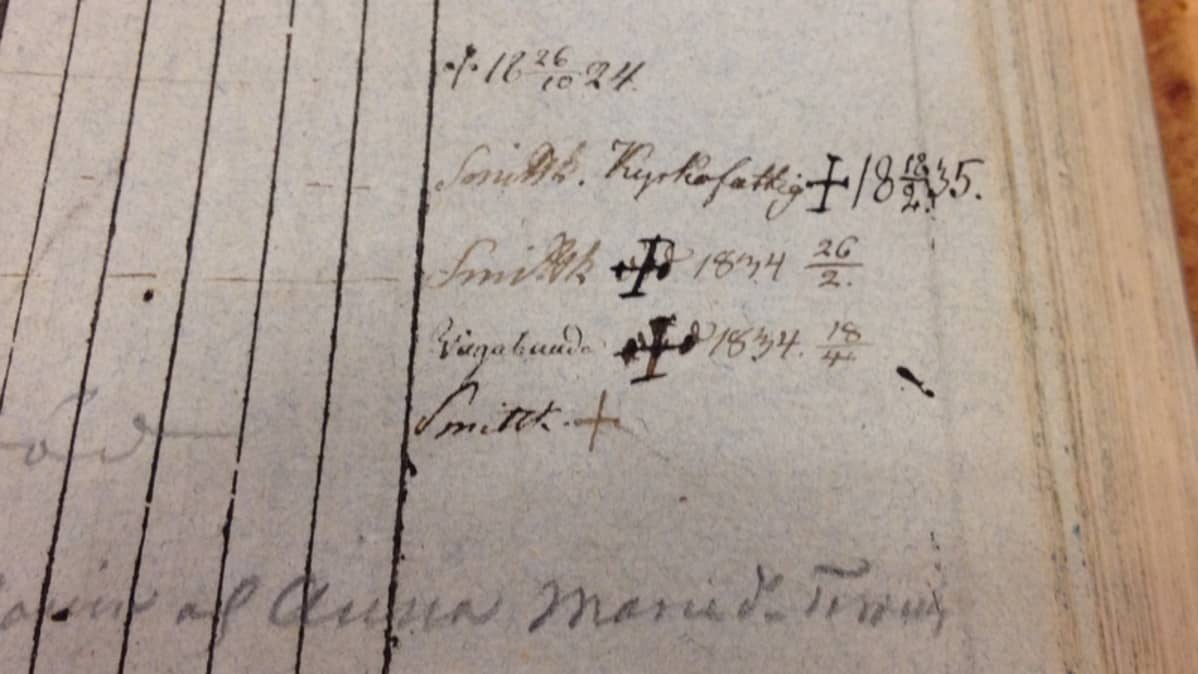 ·/· 18 26/10 24.
Smittk. Kyrkofattig + 18 18/2 35.
Smittk + död 1834 26/2.
Vagabunde + död 1834. 18/4
Smittk. +
öd
af Anna Maria